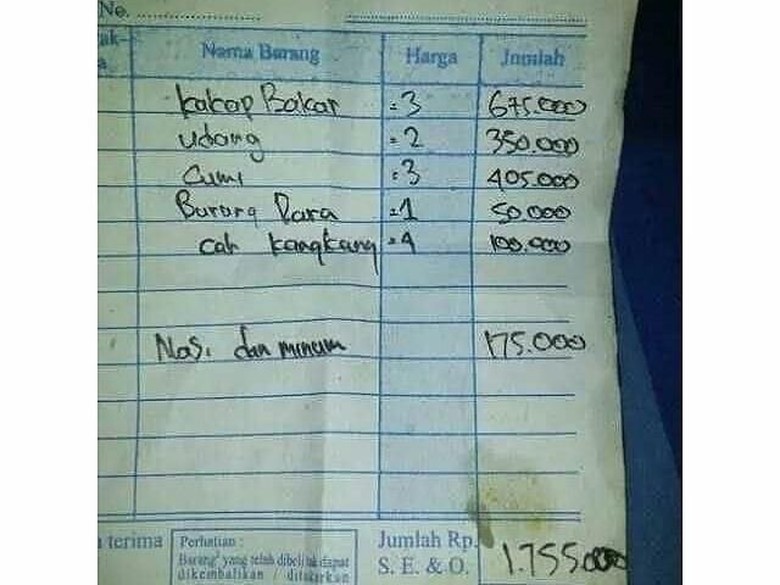 No. ....................
ak-
a
Nama Barang Harga Jumlah
kakap Bakar =3 675.000
udang =2 350.000
Cumi =3 405.000
Burung Dara =1 50.000
cah kangkung =4 100.000
Nasi dan minum 175.000
terima
Perhatian :
Barang² yang telah dibeli tak dapat
dikembalikan / ditukarkan
Jumlah Rp.
S. E. & O. 1.755.000